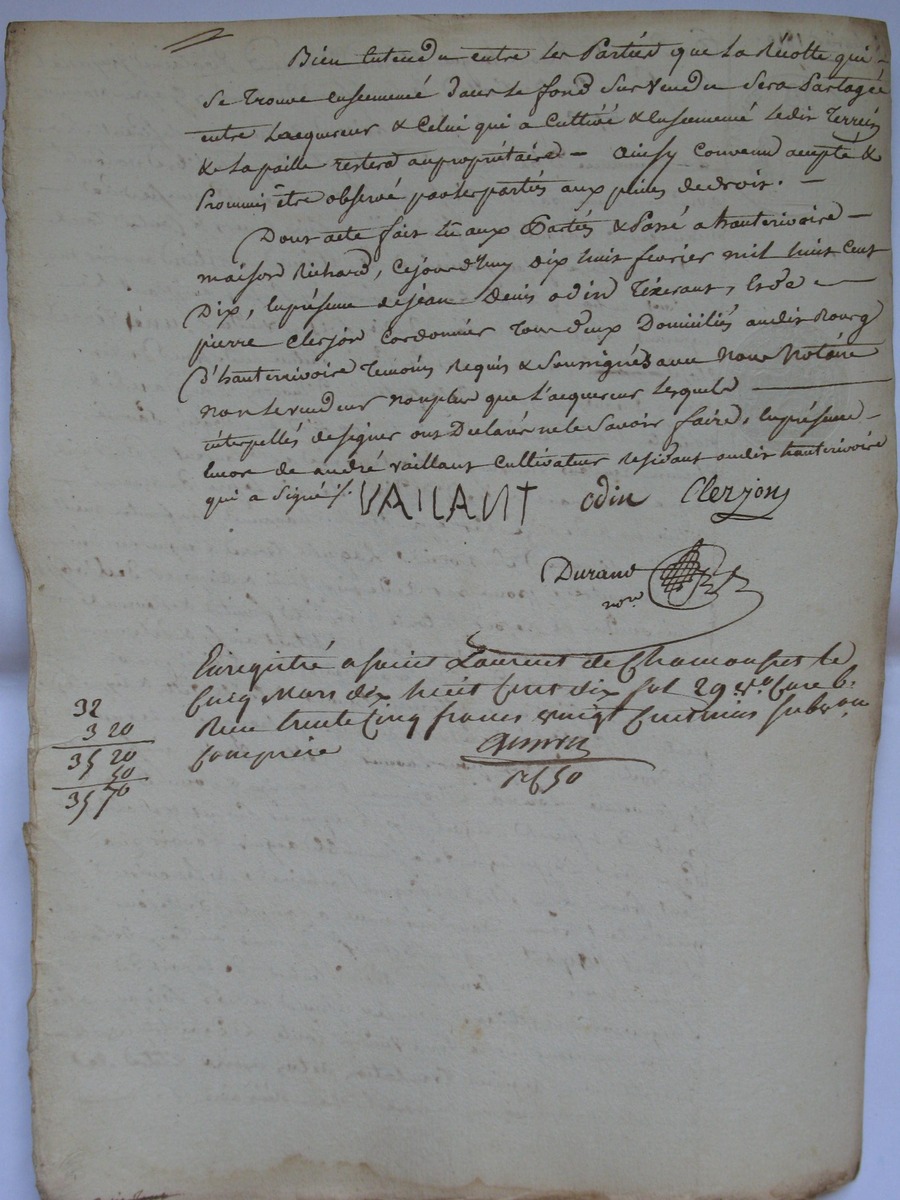 Bien Entendu entre les Parties que La Récolte qui
Se Trouve Ensemencé dans Le fond Sus Vendu Sera Partagée
entre Lacquereur & Celui qui a Cultivé & Ensemencé Ledit Terrein
& La paille restera au propriétaire – ainsy Convenu accepté &
Promis être observé par les parties aux peines de droit. –
Dont acte fait Lû aux Parties & Passé a hauterivoire –
maison Richard, Cejourd'huy dix huit février mil huit Cent
Dix, En présence de jean Denis odin Tixerant, & de
pierre Clerjon Cordonnier Tous deux Domiciliés audit Bourg
d'hauterivoire Temoins Requis & Soussignés avec Nous Notaire
non le vendeur non plus que L'acquereur Lesquels
interpellés de signer ont Déclaré ne le Savoir faire, En présence
Encor de andré vaillant Cultivateur residant audit hauterivoire
qui a Signé
VAILANT odin Clerjon
Durand
nore
Enregistré a saint Laurent de Chamousset le
Cinq Mars dix huit Cent dix fol 29 vo Case 6.
Reçu trente Cinq francs vingt Centimes subvon
Comprise
32
3 20
35 20
50
35 70